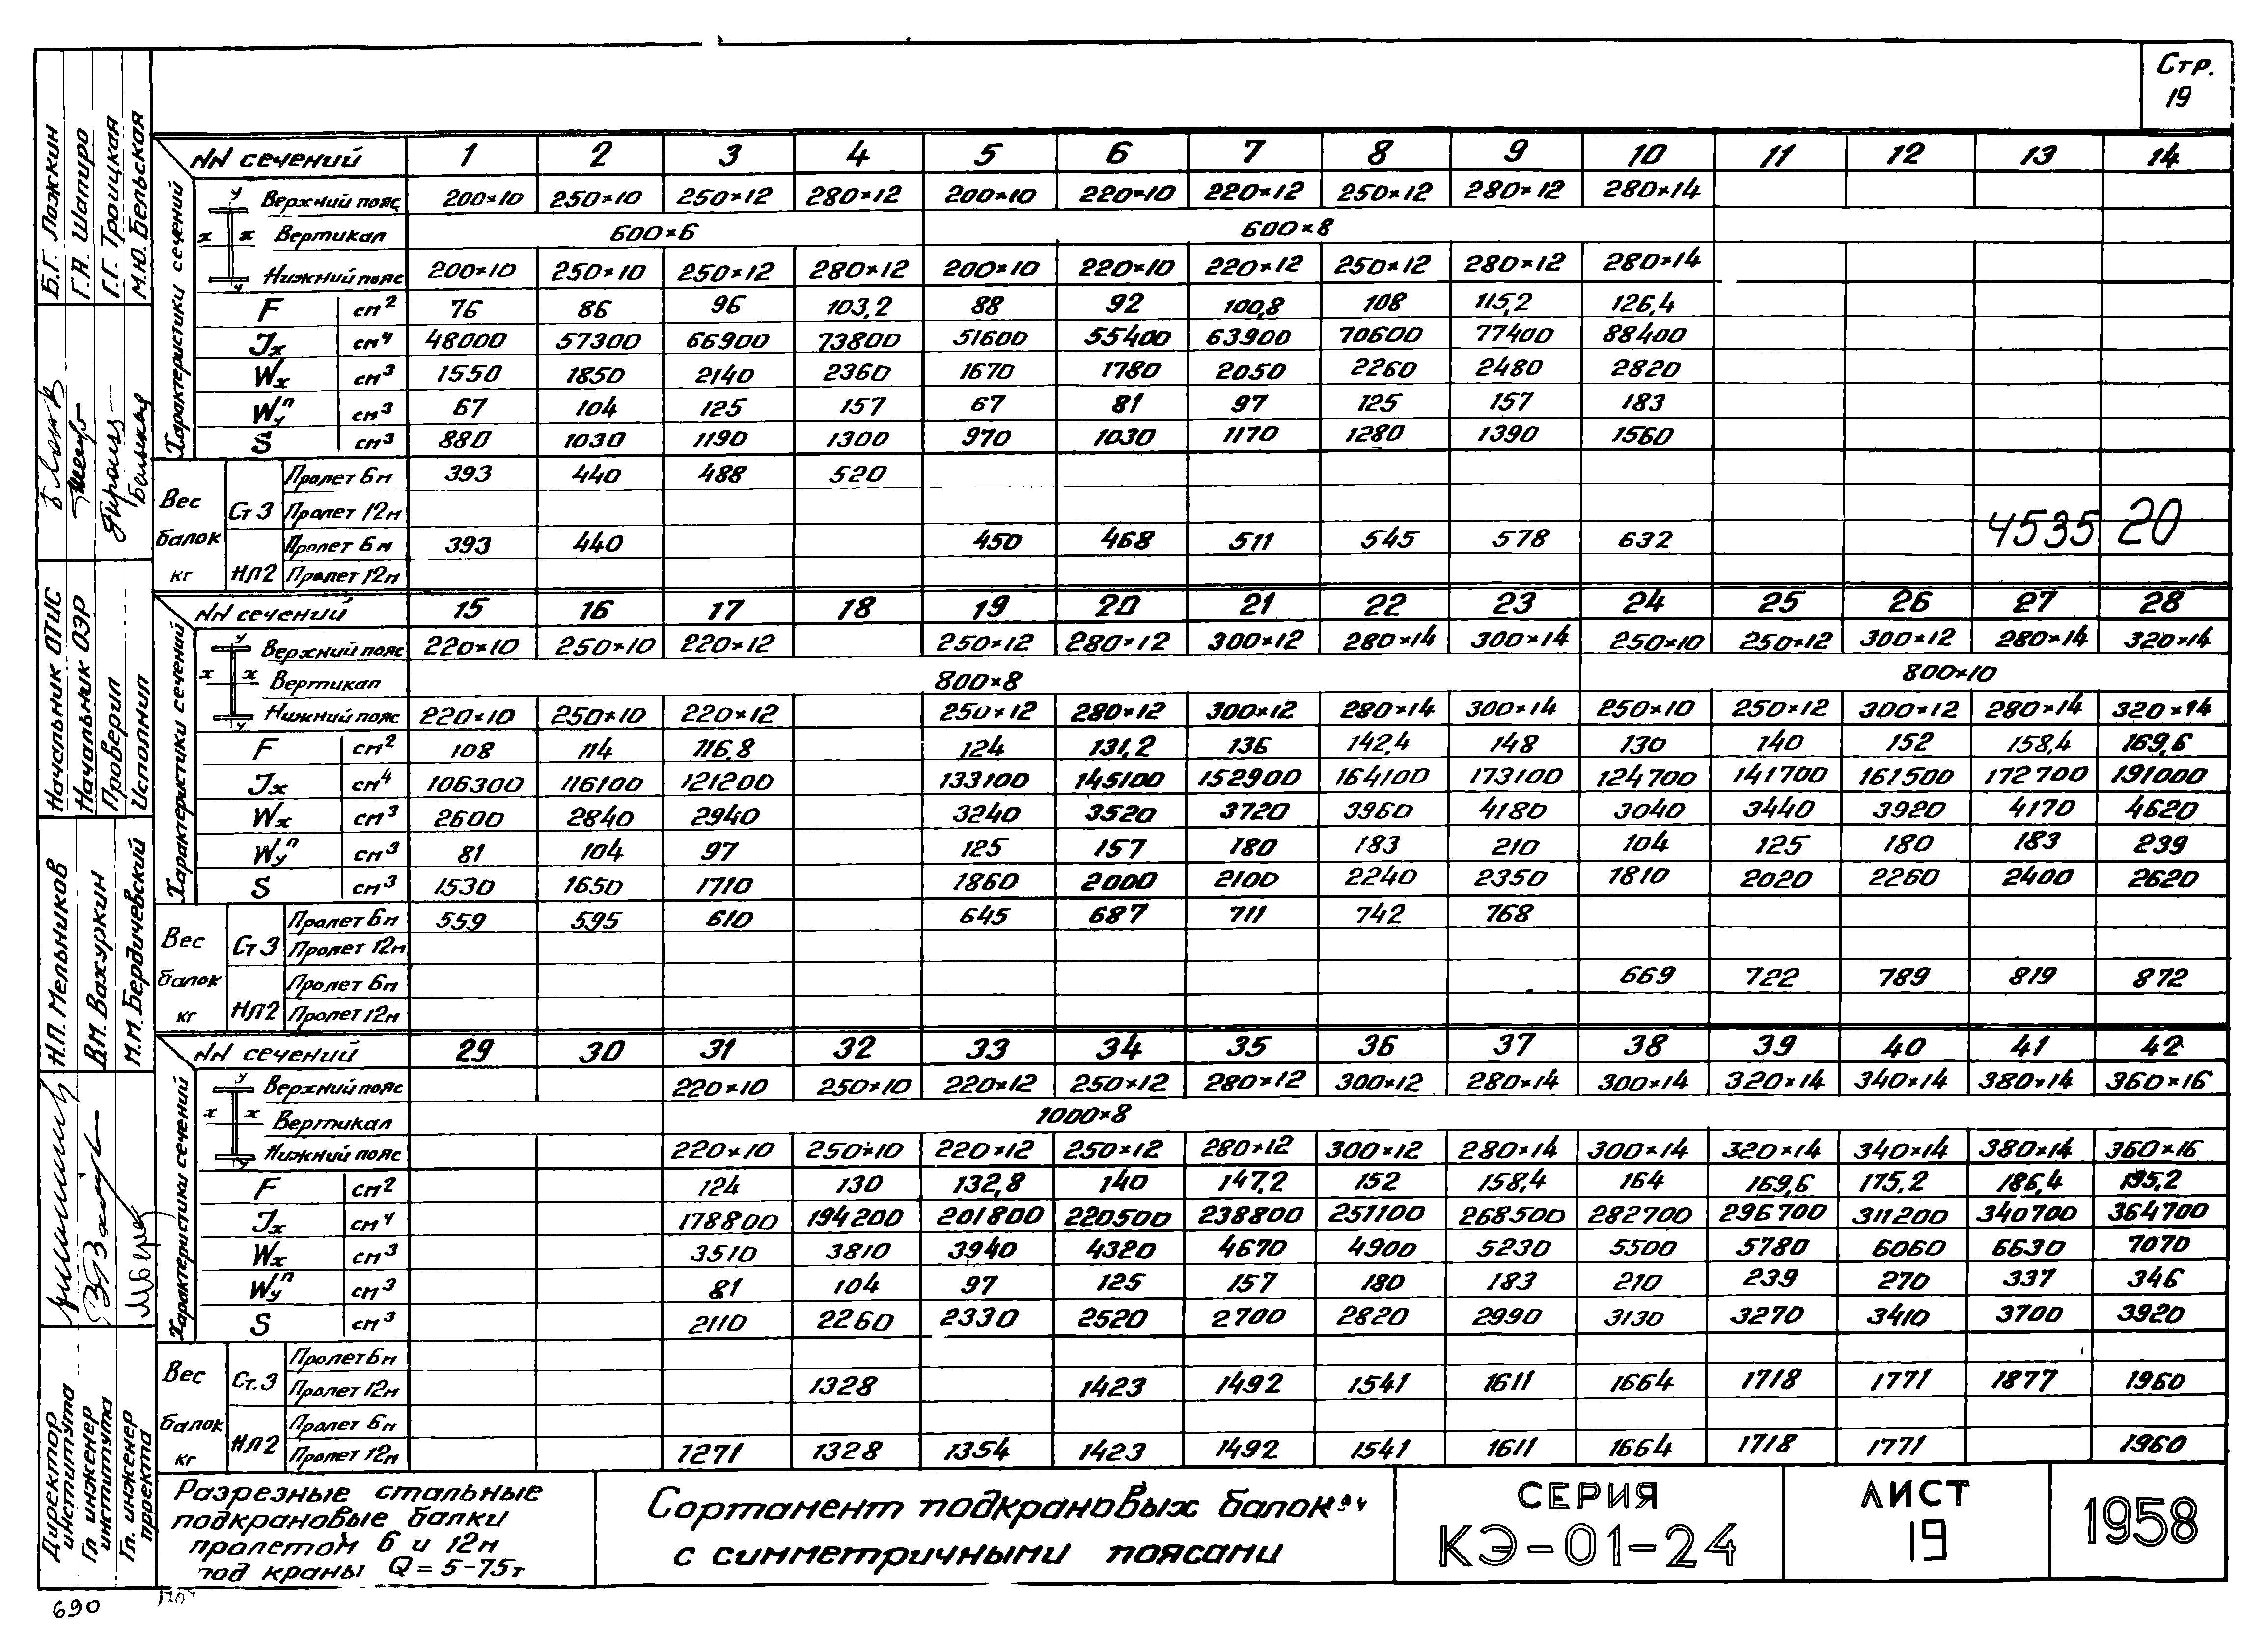 Стр.
19
NN сечений 1 2 3 4 5 6 7 8 9 10 11 12 13 14
Характеристики сечений
Верхний пояс 200×10 250×10 250×12 280×12 200×10 220×10 220×12 250×12 280×12 280×14
Вертикал 600×6 600×8
Нижний пояс 200×10 250×10 250×12 280×12 200×10 220×10 220×12 250×12 280×12 280×14
F см² 76 86 96 103,2 88 92 100,8 108 115,2 126,4
Jx см⁴ 48000 57300 66900 73800 51600 55400 63900 70600 77400 88400
Wx см³ 1550 1850 2140 2360 1670 1780 2050 2260 2480 2820
Wyп см³ 67 104 125 157 67 81 97 125 157 183
S см³ 880 1030 1190 1300 970 1030 1170 1280 1390 1560
Вес балок кг
Ст 3 Пролет 6м 393 440 488 520
Пролет 12м
4535 20
НЛ2 Пролет 6м 393 440 450 468 511 545 578 632
Пролет 12м
NN сечений 15 16 17 18 19 20 21 22 23 24 25 26 27 28
Характеристики сечений
Верхний пояс 220×10 250×10 220×12 250×12 280×12 300×12 280×14 300×14 250×10 250×12 300×12 280×14 320×14
Вертикал 800×8 800×10
Нижний пояс 220×10 250×10 220×12 250×12 280×12 300×12 280×14 300×14 250×10 250×12 300×12 280×14 320×14
F см² 108 114 116,8 124 131,2 136 142,4 148 130 140 152 158,4 169,6
Jx см⁴ 106300 116100 121200 133100 145100 152900 164100 173100 124700 141700 161500 172700 191000
Wx см³ 2600 2840 2940 3240 3520 3720 3960 4180 3040 3440 3920 4170 4620
Wyп см³ 81 104 97 125 157 180 183 210 104 125 180 183 239
S см³ 1530 1650 1710 1860 2000 2100 2240 2350 1810 2020 2260 2400 2620
Вес балок кг
Ст 3 Пролет 6м 559 595 610 645 687 711 742 768
Пролет 12м
НЛ2 Пролет 6м 669 722 789 819 872
Пролет 12м
NN сечений 29 30 31 32 33 34 35 36 37 38 39 40 41 42
Характеристики сечений
Верхний пояс 220×10 250×10 220×12 250×12 280×12 300×12 280×14 300×14 320×14 340×14 380×14 360×16
Вертикал 1000×8
Нижний пояс 220×10 250×10 220×12 250×12 280×12 300×12 280×14 300×14 320×14 340×14 380×14 360×16
F см² 124 130 132,8 140 147,2 152 158,4 164 169,6 175,2 186,4 195,2
Jx см⁴ 178800 194200 201800 220500 238800 251100 268500 282700 296700 311200 340700 364700
Wx см³ 3510 3810 3940 4320 4670 4900 5230 5500 5780 6060 6630 7070
Wyп см³ 81 104 97 125 157 180 183 210 239 270 337 346
S см³ 2110 2260 2330 2520 2700 2820 2990 3130 3270 3410 3700 3920
Вес балок кг
Ст.3 Пролет 6м
Пролет 12м 1328 1423 1492 1541 1611 1664 1718 1771 1877 1960
НЛ2 Пролет 6м
Пролет 12м 1271 1328 1354 1423 1492 1541 1611 1664 1718 1771 1960
Разрезные стальные
подкрановые балки
пролетом 6 и 12м
под краны Q=5-75т
Сортамент подкрановых балок
с симметричными поясами
СЕРИЯ
КЭ-01-24
ЛИСТ
19
1958
Директор института Н.П. Мельников
Гл инженер института В.М. Вахуркин
Гл. инженер проекта М.М. Бердичевский
Начальник ОТИС Б.Г. Ложкин
Начальник ОЭР Г.А. Шапиро
Проверил Г.Г. Троицкая
Исполнил М.Ю. Бельская
690